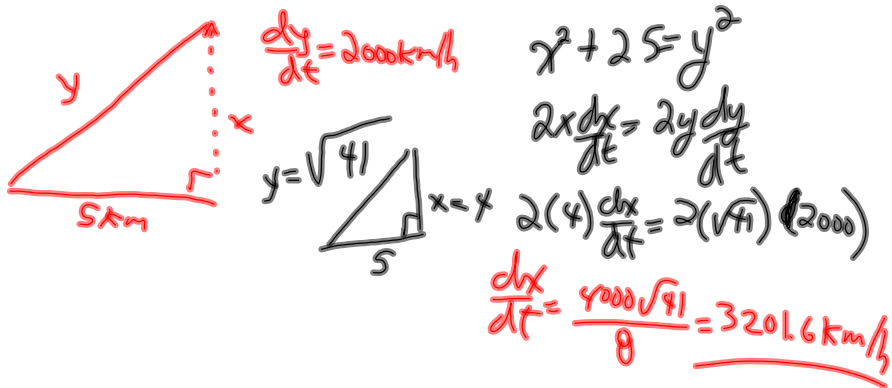 y
x
5km
dy/dt = 2000km/h
y = √41
x = 4
5
x² + 25 = y²
2x dx/dt = 2y dy/dt
2(4) dx/dt = 2(√41) (2000)
dx/dt = 4000√41/8 = 3201.6 km/h